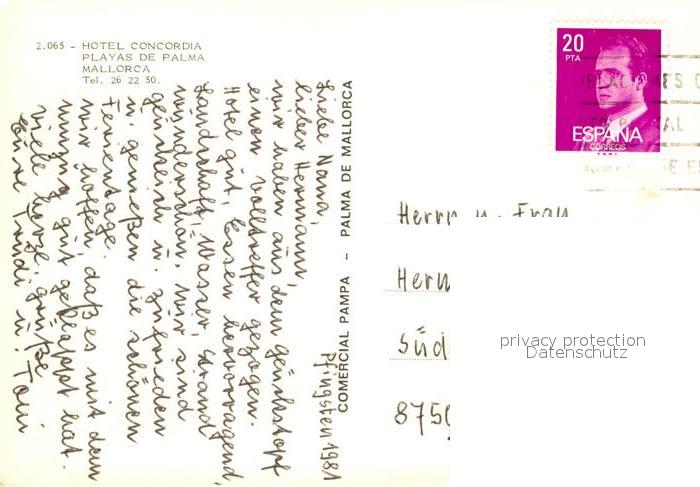 2.065 - HOTEL CONCORDIA
PLAYAS DE PALMA
MALLORCA
Tel. 26 22 50.
Pfingsten 1981
Liebe Nanna,
lieber Hermann,
wir haben aus dem Glückstopf
einen Volltreffer gezogen.
Hotel gut, Essen hervorragend,
Landschaft, Wasser, Strand
wunderschön. Wir sind
glücklich u. zufrieden
u. genießen die schönen
Ferientage.
Wir hoffen, daß es mit dem
gut geklappt hat.
Viele herzl. Grüße
Eure Trudi u. Toni
COMERCIAL PAMPA - PALMA DE MALLORCA
20
PTA
ESPAÑA
CORREOS
Herrn u. Frau
Herm
Süd
8750
privacy protection
Datenschutz